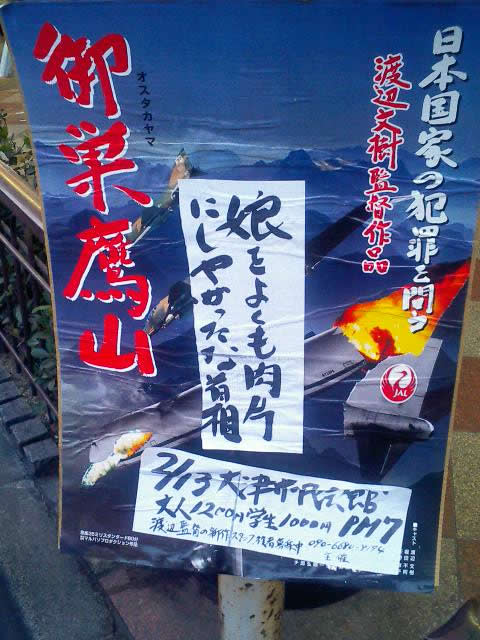 日本国家の犯罪を問う
渡辺文樹監督作品
御巣鷹山
オスタカヤマ
娘をよくも肉片
にしやがったな首相
JAL
2/13 大津市民会館
大人1200円 学生1000円 PM7
渡辺監督の新作スタッフ役者募集中
主催
キャスト